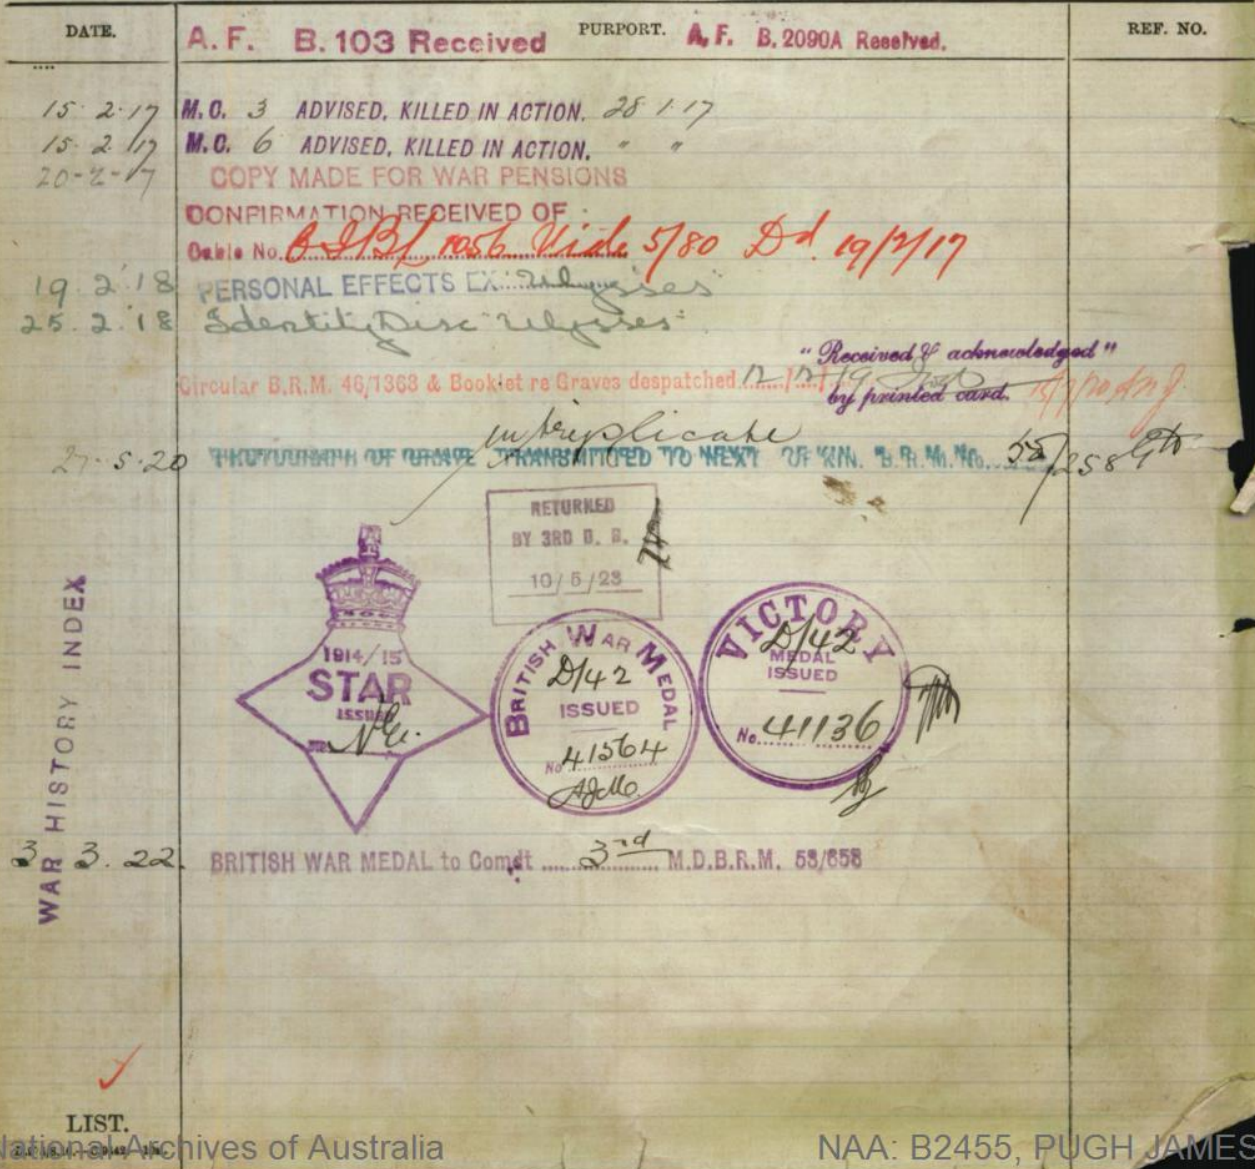 DATE. PURPORT. REF. NO.
A.F. B.103 Received A.F. B.2090A Received.
15.2.17 M.C. 3 ADVISED, KILLED IN ACTION. 28.1.17
15.2.17 M.C. 6 ADVISED, KILLED IN ACTION. " "
20-2-17 COPY MADE FOR WAR PENSIONS
CONFIRMATION RECEIVED OF
Cable No. 1056 Vide 5/80 Dd. 19/2/17
19.2.18 PERSONAL EFFECTS EX. "Ulysses"
25.2.18 Identity Disc "Ulysses"
"Received & acknowledged"
Circular B.R.M. 46/1363 & Booklet re Graves despatched
by printed card.
in triplicate
27.5.20 PHOTOGRAPH OF GRAVE TRANSMITTED TO NEXT OF KIN. B.R.M. No. 55/258
RETURNED
BY 3RD
10/5/23
1914/15
STAR
ISSUED
BRITISH WAR MEDAL
D/42
ISSUED
No 41564
VICTORY
D/42
MEDAL
ISSUED
No. 41136
WAR HISTORY INDEX
3.3.22. BRITISH WAR MEDAL to Comdt 3rd M.D.B.R.M. 53/658
LIST.
National Archives of Australia
NAA: B2455, PUGH JAMES